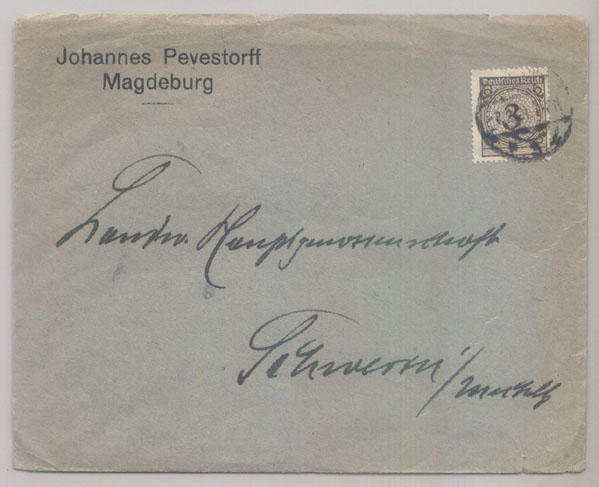 Johannes Pevestorff
Magdeburg
Deutsches Reich
3
Landw. Hauptgenossenschaft
Schwerin i/Meckl